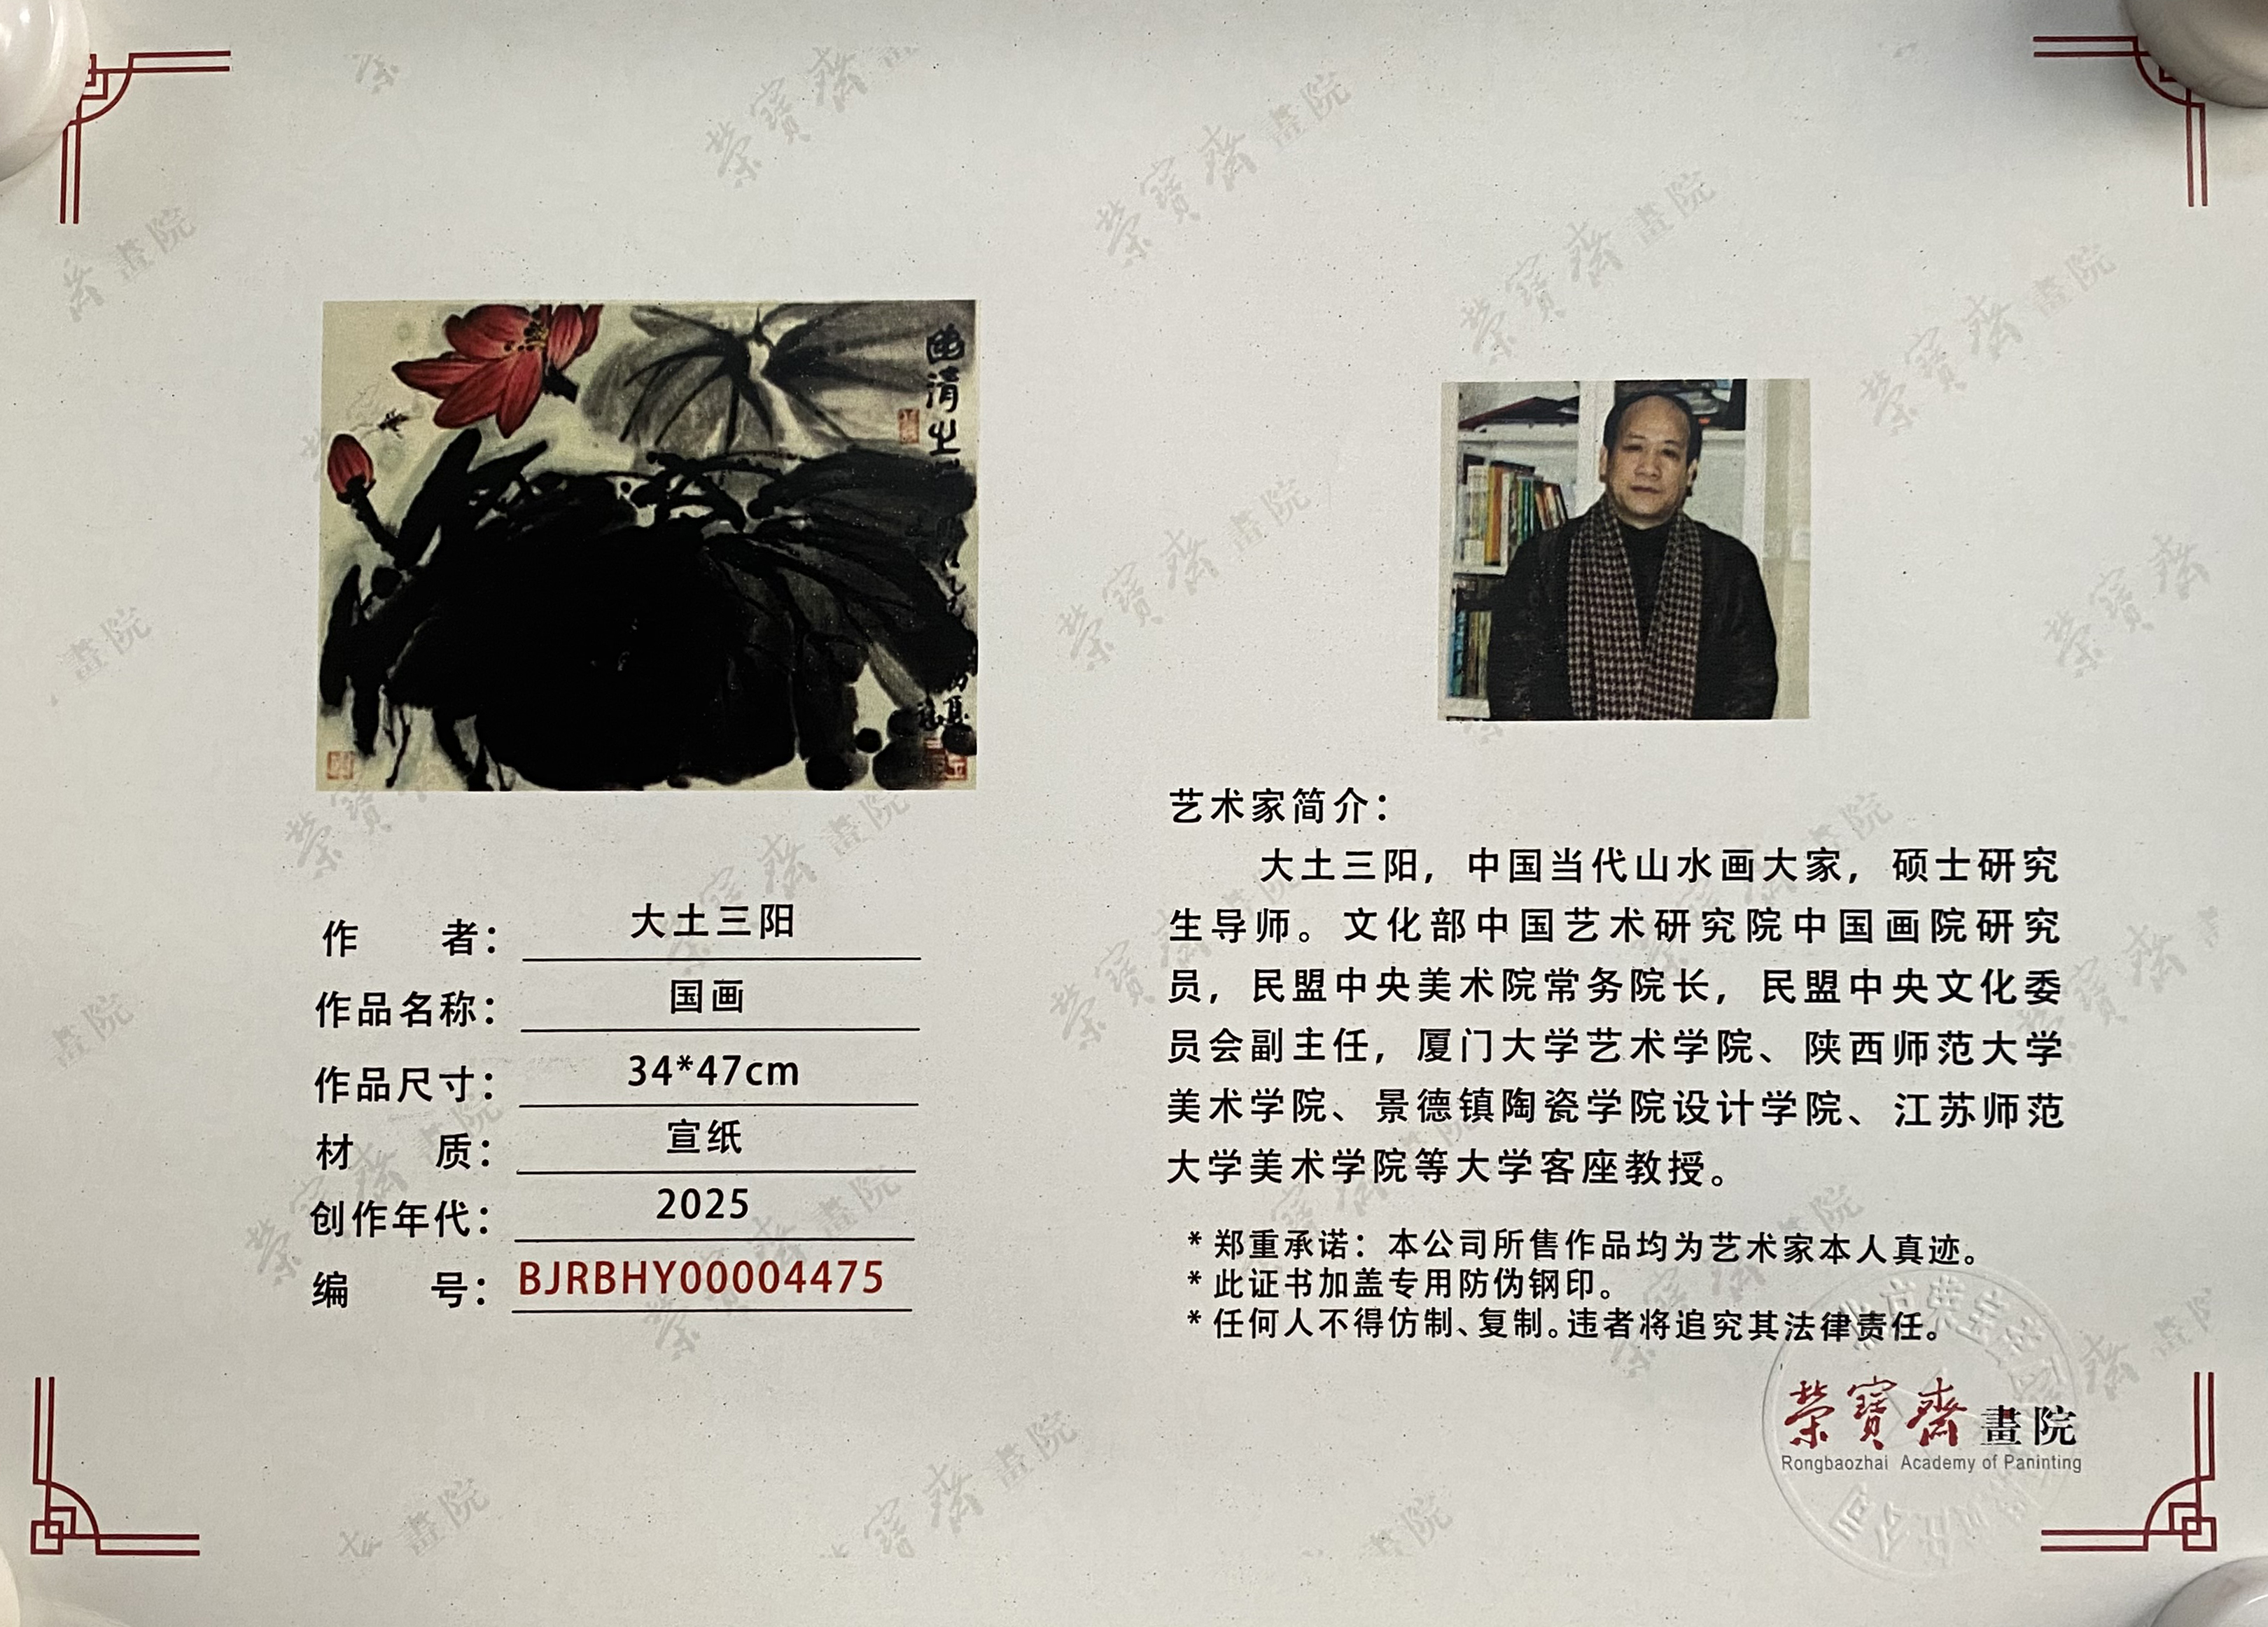 幽清之
作者：大土三阳
作品名称：国画
作品尺寸：34*47cm
材质：宣纸
创作年代：2025
编号：BJRBHY00004475
艺术家简介：
大土三阳，中国当代山水画大家，硕士研究
生导师。文化部中国艺术研究院中国画院研究
员，民盟中央美术院常务院长，民盟中央文化委
员会副主任，厦门大学艺术学院、陕西师范大学
美术学院、景德镇陶瓷学院设计学院、江苏师范
大学美术学院等大学客座教授。
*郑重承诺：本公司所售作品均为艺术家本人真迹。
*此证书加盖专用防伪钢印。
*任何人不得仿制、复制。违者将追究其法律责任。
榮寶齋畫院
Rongbaozhai Academy of Paninting